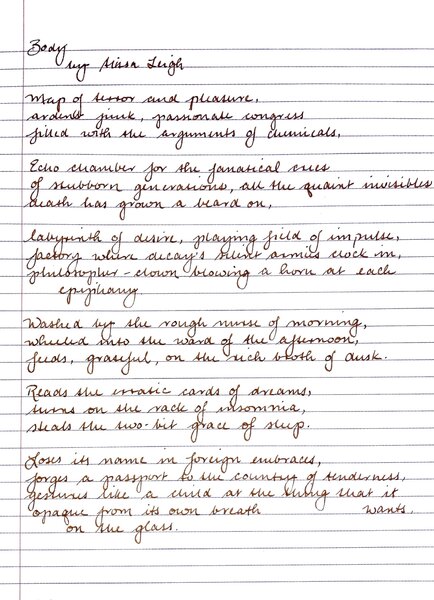 Body
by Nissa Leigh
Map of terror and pleasure,
ardent junk, passionate congress
filled with the arguments of chemicals,
Echo chamber for the fanatical cries
of stubborn generations, all the quaint invisibles
death has grown a beard on,
labyrinth of desire, playing field of impulse,
factory where decay's silent armies clock in,
philosopher-clown blowing a horn at each
epiphany.
Washed by the rough nurse of morning,
wheeled into the ward of the afternoon,
feeds, grateful, on the rich broth of dusk.
Reads the erratic cards of dreams,
turns on the rack of insomnia,
steals the two-bit grace of sleep.
Loses its name in foreign embraces,
forges a passport to the country of tenderness,
gestures like a child at the thing that it
opaque from its own breath wants
on the glass.